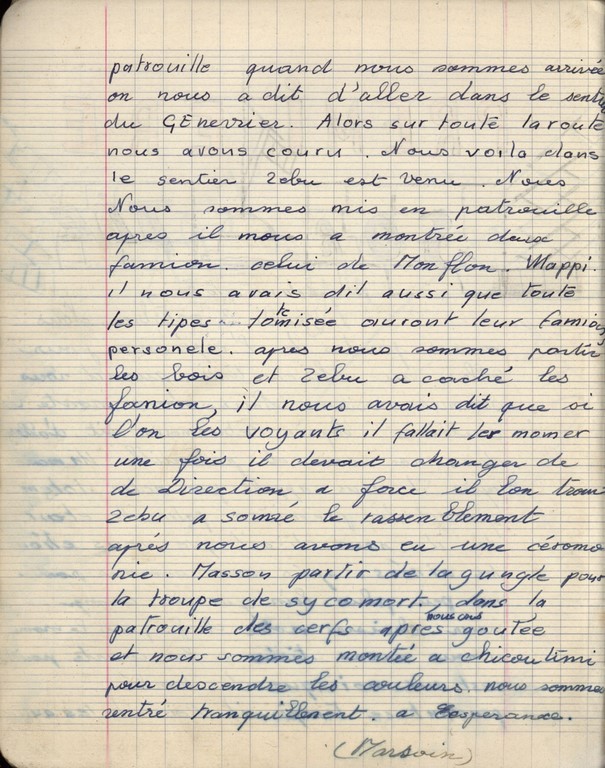 patrouille quand nous sommes arrivée
on nous a dit d'aller dans le senti
du GENevrier. Alors sur toute la route
nous avons couru. Nous voila dans
le sentier Zebu est venu. Nous
Nous sommes mis en patrouille
apres il nous a montrée deux
famion. celui de Monflon. Wappi.
il nous avais dit aussi que toute
les tipes totemisée auront leur famion
personele. apres nous sommes partir
les bois et Zebu a caché les
fanion, il nous avais dit que si
l'on les voyants il fallait les momer
une fois il devait changer de
de Direction a force il lon trouv
Zebu a sonné le rassenblement
aprés nous avons eu une céromo
nie. Masson partir de la gungle pour
la troupe de sycomort, dans la
patrouille des cerfs apres nous avons goutée
et nous sommes montée a chicoutimi
pour descendre les couleurs. nous somme
rentré tranquillement. a Esperance.
(Marsoin)